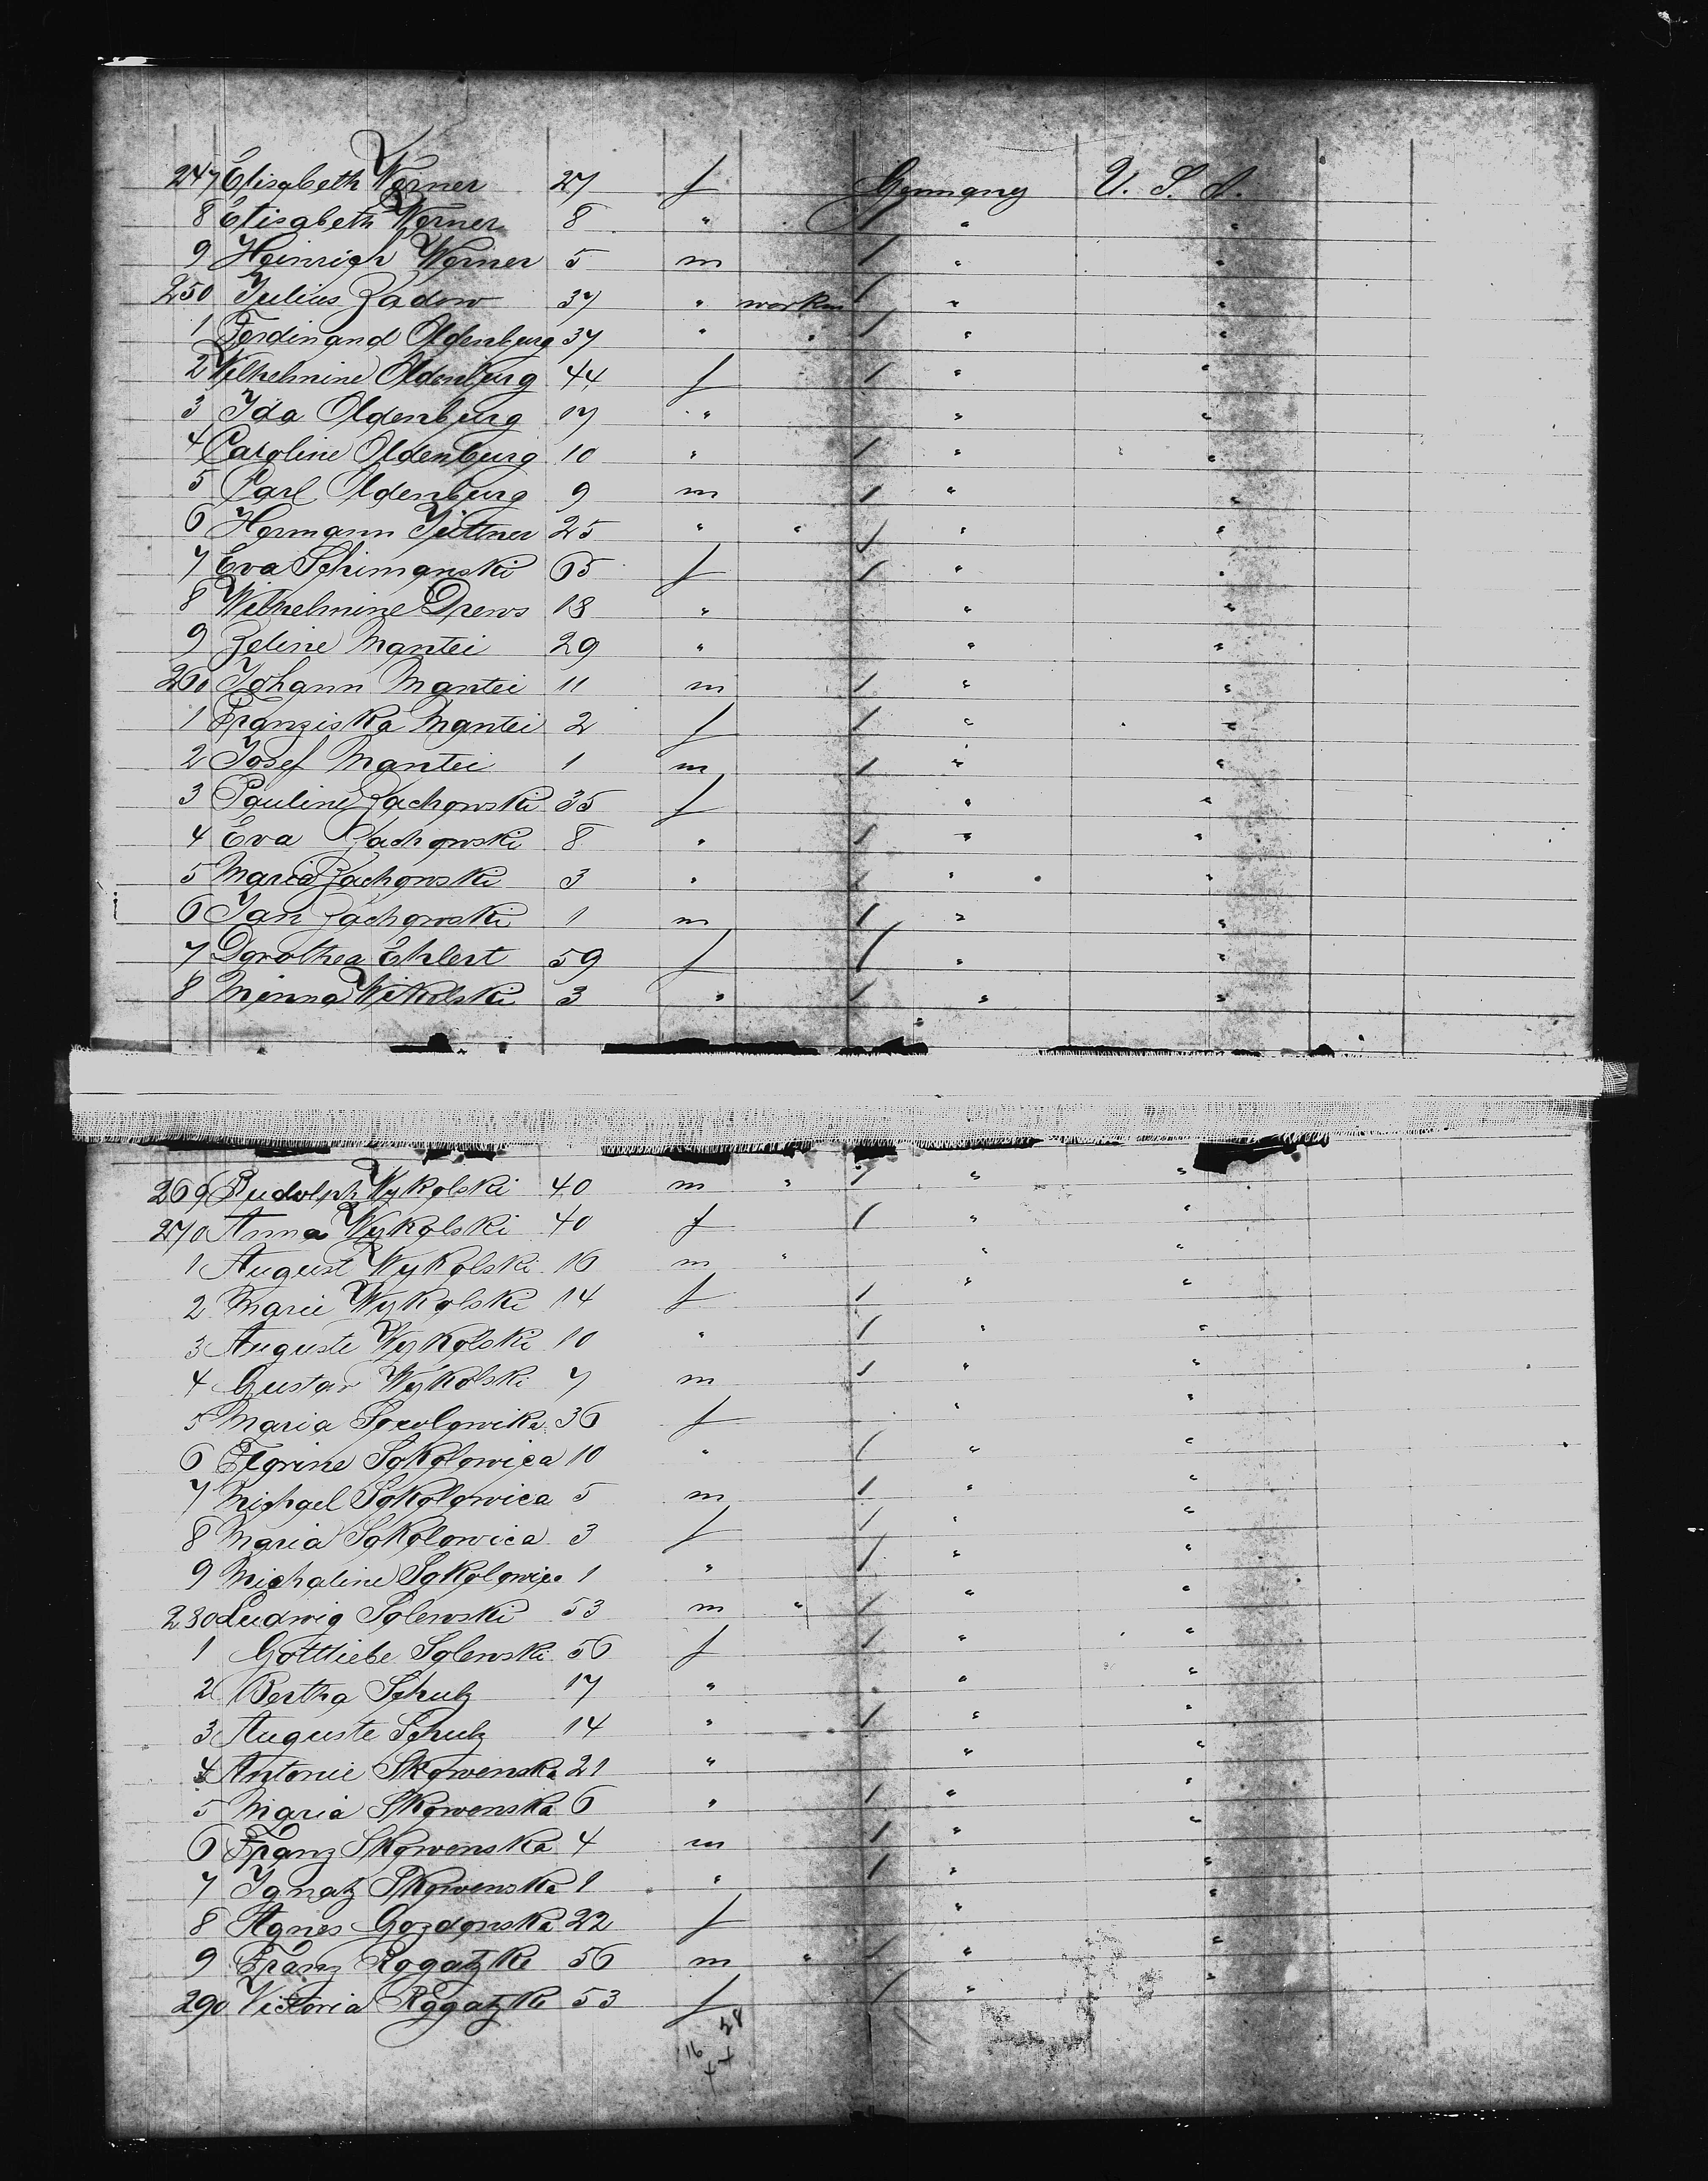 247 Elisabeth Werner 27 f Germany U. S. A.
8 Elisabeth Werner 8 " " "
9 Heinrich Werner 5 m " "
250 Julius Zadow 37 " workm " "
1 Ferdinand Oldenburg 37 " " " "
2 Wilhelmine Oldenburg 44 f " "
3 Ida Oldenburg 17 " " "
4 Caroline Oldenburg 10 " " "
5 Carl Oldenburg 9 m " "
6 Hermann Jüttner 25 " " " "
7 Eva Schimanski 65 f " "
8 Wilhelmine Drews 18 " " "
9 Zeline Mantei 29 " " "
260 Johann Mantei 11 m " "
1 Franziska Mantei 2 f " "
2 Josef Mantei 1 m " "
3 Pauline Zachowski 35 f " "
4 Eva Zachowski 8 " " "
5 Maria Zachowski 3 " " "
6 Jan Zachowski 1 m " "
7 Dorothea Ehlert 59 f " "
8 Minna Wikolski 3 " " "
269 Rudolph Wykolski 40 m " " "
270 Anna Wykolski 40 f " "
1 August Wykolski 16 m " " "
2 Marie Wykolski 14 f " "
3 Auguste Wykolski 10 " " "
4 Gustav Wykolski 7 m " "
5 Maria 36 f " "
6 Florine Sokolowica 10 " " "
7 Michael Sokolowica 5 m " "
8 Maria Sokolowica 3 f " "
9 Michaline Sokolowica 1 " " "
230 Ludwig Solewski 53 m " " "
1 Gottliebe Solewski 56 f " "
2 Bertha Schulz 17 " " "
3 Auguste Schulz 14 " " "
4 Antonie Skowenska 21 " " "
5 Maria Skowenska 6 " " "
6 Franz Skowenska 4 m " "
7 Ignatz Skowenska 1 " " "
8 Agnes Gozdonska 22 f " "
9 Franz Rogatzke 56 m " " "
290 Victoria Rogatzke 53 f " "
28
16